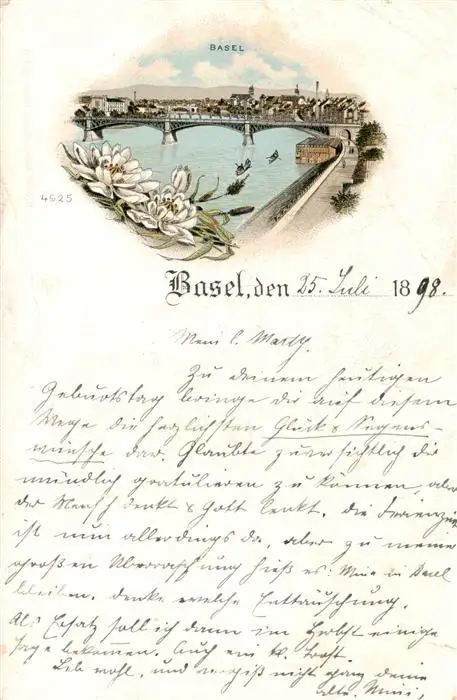 BASEL
4625
Basel, den 25. Juli 1898.
Mein l. Marty.
Zu deinem heutigen
Geburtstag bringe dir auf diesem
Wege die herzlichsten Glück & Segens-
wünsche dar. Glaubte zuversichtlich dir
mündlich gratulieren zu können, aber
der Mensch denkt & Gott lenkt. die Ferienzeit
ist nun allerdings da, aber zu meiner
großen Überraschung hieß es: Mina in Basel
bleiben. denke welche Enttäuschung.
Als Ersatz soll ich dann im Herbst einige
Tage bekommen. Auch ein Trost.
Leb wohl, und vergiß nicht ganz deine
alte